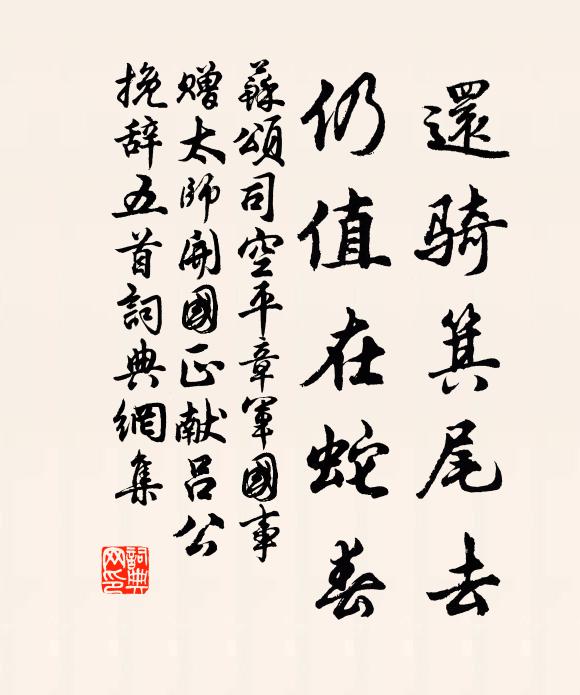 還骑箕尾去
仍值在蛇春
蘇頌司空平章軍國事
赠太師開國正献吕公
挽辞五首詞典網集
詞典
网印